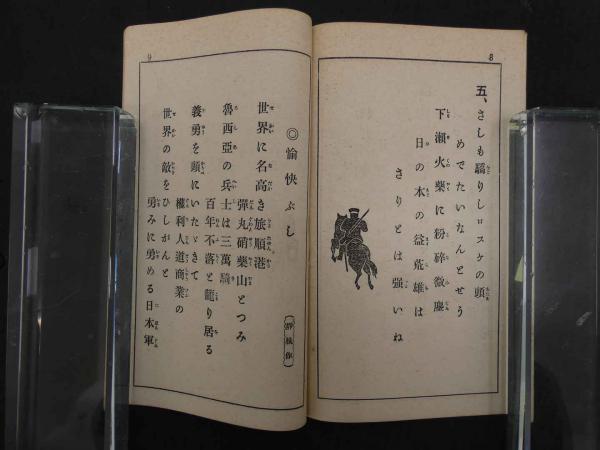 8
五、さしも驕りしロスケの頭
めでたいなんとせう
下瀬火薬に粉砕微塵
日の本の益荒雄は
さりとは強いね
9
◎愉快ぶし
世界に名高き旅順港
弾丸硝薬山とつみ
魯西亜の兵士は三萬騎
百年不落と籠り居る
義勇を頭にいたゞきて
權利人道商業の
世界の敵をひしがんと
勇みに勇める日本軍